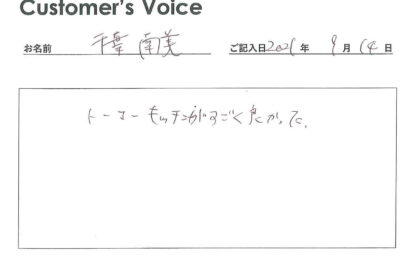 Customer's Voice
お名前 千葉 南美 ご記入日2021年 9月14日
トーヨーキッチンがすごく良かった。